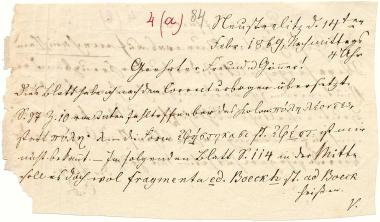 4 (a) 84.
Neustrelitz d. 14ten
Febr. 1869, Nachmittags
4 Uhr
Geehrter Freund u Gönner!
Das Blatt hab ich nach dem Correcturbogen übersetzt.
S. 97 Z. 10 von unten
statt πολη. die Form st. ist mir
nicht bekannt — Im folgenden Blatt S. 114 in der Mitte
soll es doch wol fragmenta ed. Boeckh st. ad Boeck
heißen.
V.